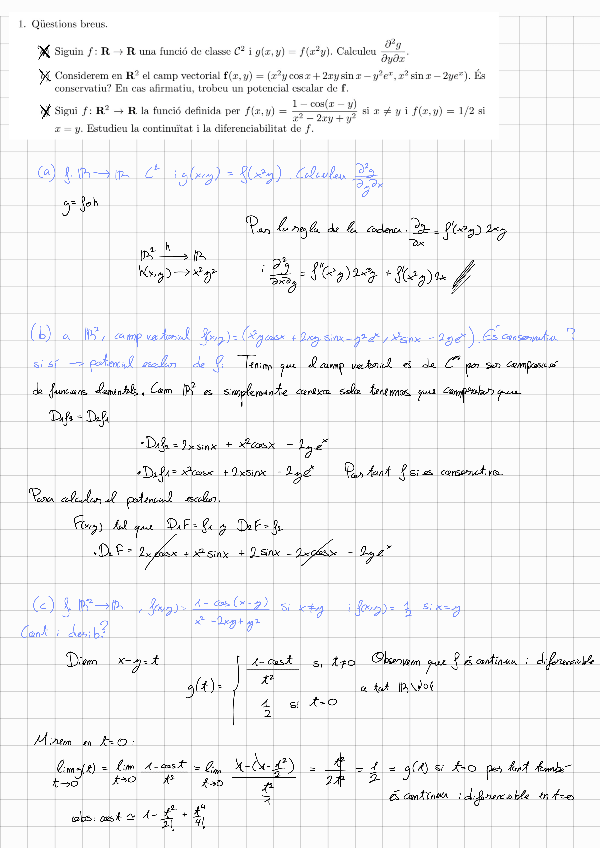 1. Qüestions breus.
Siguin f : R → R una funció de classe C² i g(x, y) = f(x²y). Calculeu ∂²g/∂y∂x.
Considerem en R² el camp vectorial f(x, y) = (x²y cos x + 2xy sin x − y²eˣ, x² sin x − 2yeˣ). És
conservatiu? En cas afirmatiu, trobeu un potencial escalar de f.
Sigui f : R² → R la funció definida per f(x, y) = (1 − cos(x − y))/(x² − 2xy + y²) si x ≠ y i f(x, y) = 1/2 si
x = y. Estudieu la continuïtat i la diferenciabilitat de f.
(a) f: R → R C² i g(x,y) = f(x²y). Calculeu ∂²g/∂y∂x
g = f∘h
Per la regla de la cadena. ∂g/∂x = f'(x²y) 2xy
R² —h→ R
h(x,y) → x²y²
i ∂²g/∂x∂y = f''(x²y) 2x³y + f'(x²y) 2x
(b) a R², camp vectorial f(x,y) = (x²y cosx + 2xy sinx − y²eˣ, x² sinx − 2yeˣ). És conservatiu?
si sí → potencial escalar de f. Tenim que el camp vectorial és de C per ser composició
de funcions elementals. Com R² es simplemente conexe solo tenemos que comprobar que
D₁f₂ = D₂f₁
• D₁f₂ = 2x sinx + x² cosx − 2yeˣ
• D₂f₁ = x² cosx + 2x sinx − 2yeˣ Per tant f si es conservativa.
Para calcular el potencial escalar.
F(x,y) tal que D₁F = f₁ y D₂F = f₂
• D₂F = 2x cosx + x² sinx + 2 sinx − 2x cosx − 2yeˣ
(c) f: R² → R, f(x,y) = (1 − cos(x−y))/(x² − 2xy + y²) si x≠y i f(x,y) = 1/2 si x=y
Cont i derib?
Diem x−y = t
g(t) = { (1−cost)/t² si t≠0 Observem que f és contínua i diferenciable
a tot R\{0}
1/2 si t=0
Mirem en t=0.
lim g(t) = lim (1−cost)/t² = lim (1−(1−t²/2))/t² = t²/2t² = 1/2 = g(t) si t=0 per tant també
t→0 t→0 t→0
és contínua i diferenciable en t=0
obs: cost ≃ 1 − t²/2! + t⁴/4!